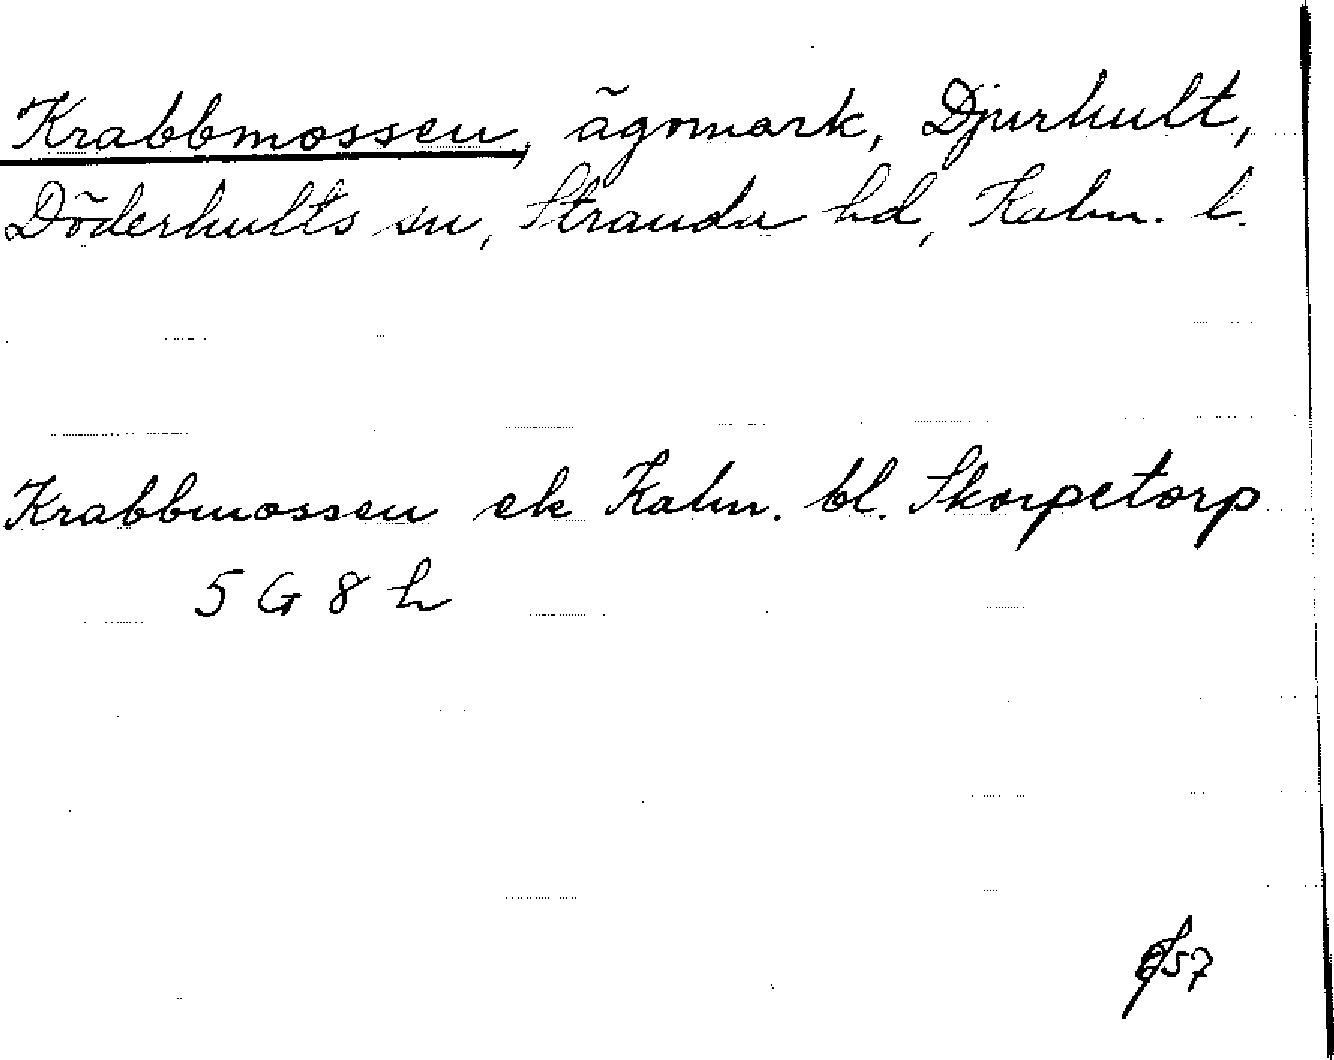 Krabbmossen, ägomark, Djurhult,
Döderhults sn, Stranda hd, Kalm. l.
Krabbmossen ek Kalm. bl. Skorpetorp
5 G 8 h
57